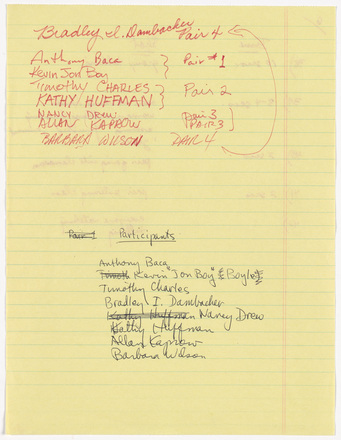 Bradley I. Dambacher Pair 4
Anthony Baca } Pair #1
Kevin Jon Boy
Timothy CHARLES } Pair 2
KATHY HUFFMAN
NANCY DREW Pair 3
ALLAN KAPROW PAIR 3
BARBARA WILSON PAIR 4
Pair 1 Participants
Anthony Baca
Timoth Kevin "Jon Boy" Boyle
Timothy Charles
Bradley I. Dambacher
Kathy Huffman Nancy Drew
Kathy Huffman
Allan Kaprow
Barbara Wilson